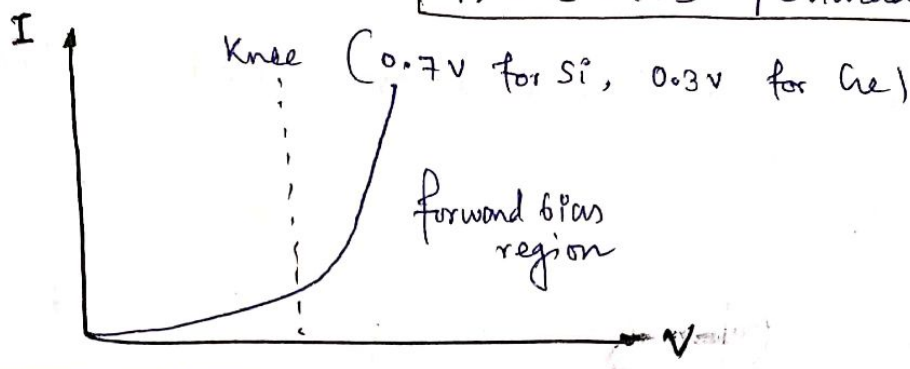 I
Knee (0.7V for Si, 0.3V for Ge)
forward bias
region
V